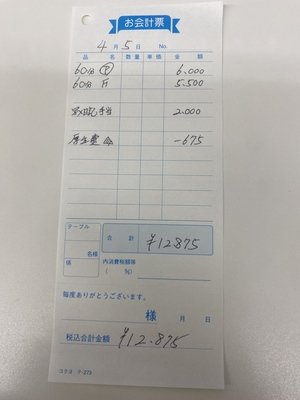 お会計票
4月 5日 No.
品名 数量 単価 金額
60分 Ⓟ 6,000
60分 5,500
手当 2,000
厚生費 -675
テーブル
名様
合計 ¥12875
内消費税額等
( %)
毎度ありがとうございます。
様 月 日
税込合計金額 ¥12.875
コクヨ テ-273